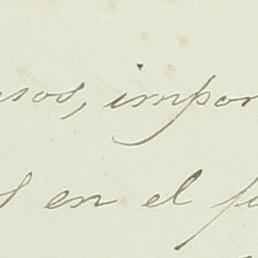 esos, impor
s en el fu